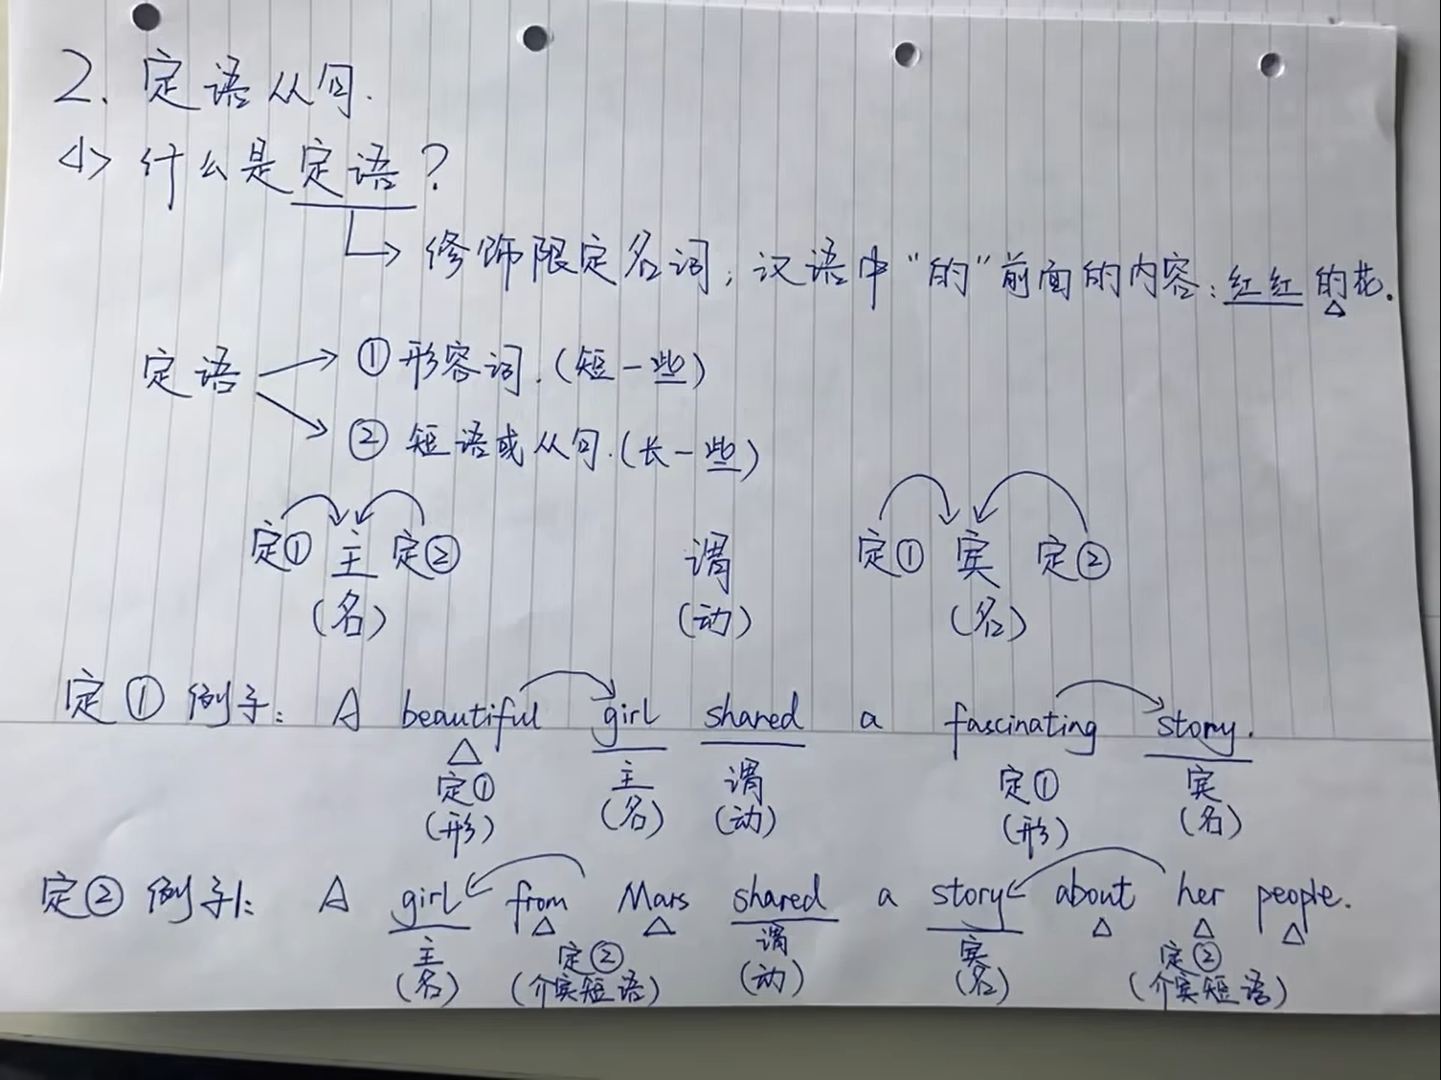 2. 定语从句.
<1> 什么是定语?
修饰限定名词; 汉语中“的”前面的内容: 红红的花.
定语
① 形容词. (短一些)
② 短语或从句. (长一些)
定① 主 定② 谓 定① 宾 定②
(名) (动) (名)
定① 例子: A beautiful girl shared a fascinating story.
定① 主 谓 定① 宾
(形) (名) (动) (形) (名)
定② 例子1: A girl from Mars shared a story about her people.
主 定② 谓 宾 定②
(名) (介宾短语) (动) (名) (介宾短语)